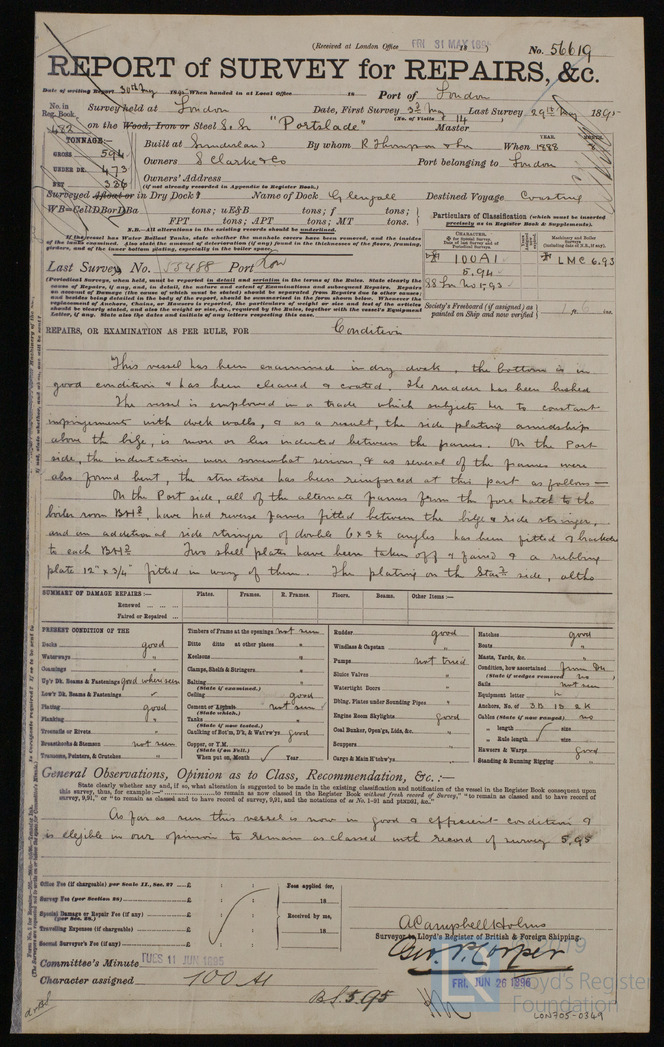 (Received at London Office FRI 31 MAY 1895 18 ) No. 56619
REPORT of SURVEY for REPAIRS, &c.
Date of writing Report 30th May 1895 When handed in at Local Office 18 Port of London
No. in Reg. Book. Survey held at London Date, First Survey 3rd May Last Survey 29th May 1895
(No. of Visits 14)
482 on the Wood, Iron or Steel S.Sr "Portslade" Master
TONNAGE:— Built at Sunderland By whom R Thompson & Son When 1888 YEAR. MONTH. 8
GROSS 594 Owners S Clarke & Co Port belonging to London
UNDER DK. 473 Owners' Address
NET 336 (if not already recorded in Appendix to Register Book.)
Surveyed Afloat or in Dry Dock? Name of Dock Glengall Destined Voyage Coasting
WB=CellDBorDBa tons; uE&B tons; f tons;
FPT tons; APT tons; MT tons.
N.B.—All alterations in the existing records should be underlined.
If the vessel has Water Ballast Tanks, state whether the manhole covers have been removed, and the insides of the tanks examined. Also state the amount of deterioration (if any) found in the thicknesses of the floors, framing, girders, and of the inner bottom plating, especially in the boiler space.
Particulars of Classification (which must be inserted precisely as in Register Book & Supplements).
CHARACTER. Machinery and Boiler Surveys
100A1 LMC 6.93
5.94
SS Lon No 1.93
Last Survey No. 55488 Port Lon
(Periodical Surveys, when held, must be reported in detail and seriatim in the terms of the Rules. State clearly the cause of Repairs, if any, and, in detail, the nature and extent of Examinations and subsequent Repairs. Repairs on account of Damage (the cause of which must be stated) should be separated from Repairs due to other causes, and besides being detailed in the body of the report, should be summarised in the form shown below. Whenever the replacement of Anchors, Chains, or Hawsers is reported, the particulars of weight or size and test of the articles should be clearly stated, and also the weight or size, &c., required by the Rules, together with the vessel's Equipment Letter, if any. State also the dates and initials of any letters respecting this case.
Society's Freeboard (if assigned) as painted on Ship and now verified ft. ins
REPAIRS, OR EXAMINATION AS PER RULE, FOR Condition
This vessel has been examined in dry dock, the bottom is in
good condition & has been cleaned & coated. The rudder has been bushed
The vessel is employed in a trade which subjects her to constant
impingement with dock walls, & as a result, the side plating amidships
above the bilge, is more or less indented between the frames. On the Port
side, the indentations were somewhat serious, & as several of the frames were
also found bent, the structure has been reinforced at this part as follows—
On the Port side, all of the alternate frames from the fore hatch to the
boiler room BHd, have had reverse frames fitted between the bilge & side stringer,
and an additional side stringer of double 6 x 3½ angles has been fitted & bracketed
to each BHd. Two shell plates have been taken off & faired & a rubbing
plate 12" x 3/4" fitted in way of them. The plating on the Starbd side, altho
SUMMARY OF DAMAGE REPAIRS:— Plates. Frames. R. Frames. Floors. Beams. Other Items:—
Renewed ... ... ...
Faired or Repaired ...
PRESENT CONDITION OF THE
Decks good
Waterways "
Coamings "
Up'r Dk. Beams & Fastenings good where seen
Low'r Dk. Beams & Fastenings
Plating good
Planking
Treenails or Rivets "
Breasthooks & Stemson not seen
Transoms, Pointers, & Crutches "
Timbers of Frame at the openings not seen
Ditto ditto at other places "
Keelsons "
Clamps, Shelfs & Stringers "
Salting "
(State if examined.)
Ceiling good
Cement or Asphalte not seen
(State which.)
Tanks "
(State if now tested.)
Caulking of Bot'm, D'k, & Wat'rw'ys good
Copper, or Y.M.
(State if on Felt.)
When put on, Month Year
Rudder good
Windlass & Capstan "
Pumps not tried
Sluice Valves "
Watertight Doors "
Dblng. Plates under Sounding Pipes "
Engine Room Skylights good
Coal Bunker, Open'gs, Lids, &c. "
Scuppers "
Cargo & Main H'tchw'ys "
Hatches good
Boats "
Masts, Yards, &c. "
Condition, how ascertained from Dk
(State if wedges removed no )
Sails not seen
Equipment letter h
Anchors, No. of 3B 1S 2K
Cables (State if now ranged) no
„ length size
„ Rule length size
Hawsers & Warps good
Standing & Running Rigging "
General Observations, Opinion as to Class, Recommendation, &c.:—
State clearly whether any, and if, so, what alteration is suggested to be made in the existing classification and notification of the vessel in the Register Book consequent upon this survey, thus, for example:—" to remain as now classed in the Register Book without fresh record of Survey," "to remain as classed and to have record of survey, 9,91," or "to remain as classed and to have record of survey, 9,91, and the notations of ss No. 1-91 and ptND91, &c."
As far as seen this vessel is now in good & efficient condition &
is eligible in our opinion to remain as classed with record of survey 5,95
Office Fee (if chargeable) per Scale II., Sec. 27 ... £ : : Fees applied for,
Survey Fee (per Section 28) ... £ : : 18
Special Damage or Repair Fee (if any) ... £ : : Received by me,
(per Sec. 28.)
Travelling Expenses (if chargeable) ... £ : : 18
Second Surveyor's Fee (if any) ... £ : :
A Campbell Holms
Surveyor to Lloyd's Register of British & Foreign Shipping.
Committee's Minute TUES 11 JUN 1895
Character assigned 100 A1
BS. 5.95
FRI, JUN 26 1896
Lloyd's Register
Foundation
LON705-0349